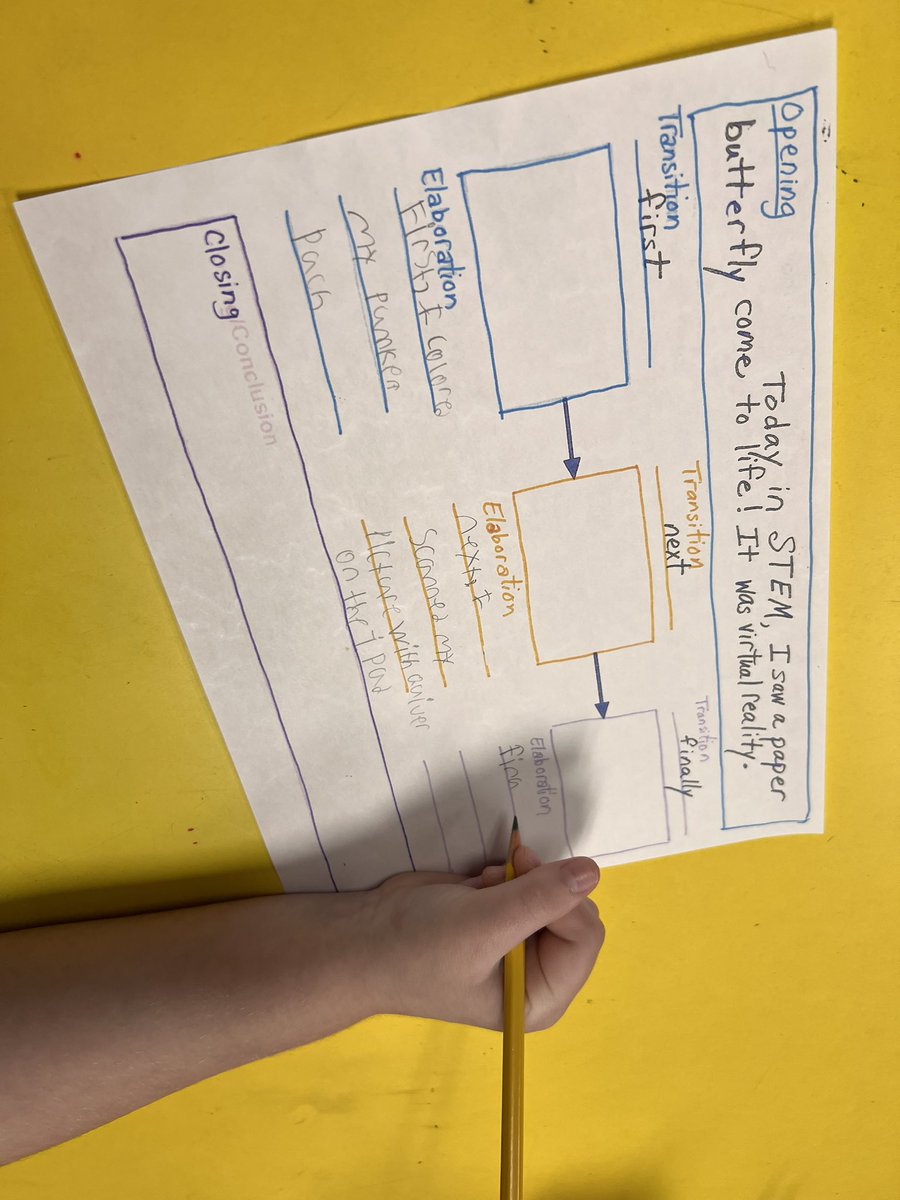 Opening
Today in STEM, I saw a paper
butterfly come to life! It was virtual reality.
Transition
first
Elaboration
First I colored
my punken
Pach
Transition
next
Elaboration
next, I
Scanned my
PIcture with quiver
on the I pad
Transition
finally
Elaboration
fina
Closing/Conclusion